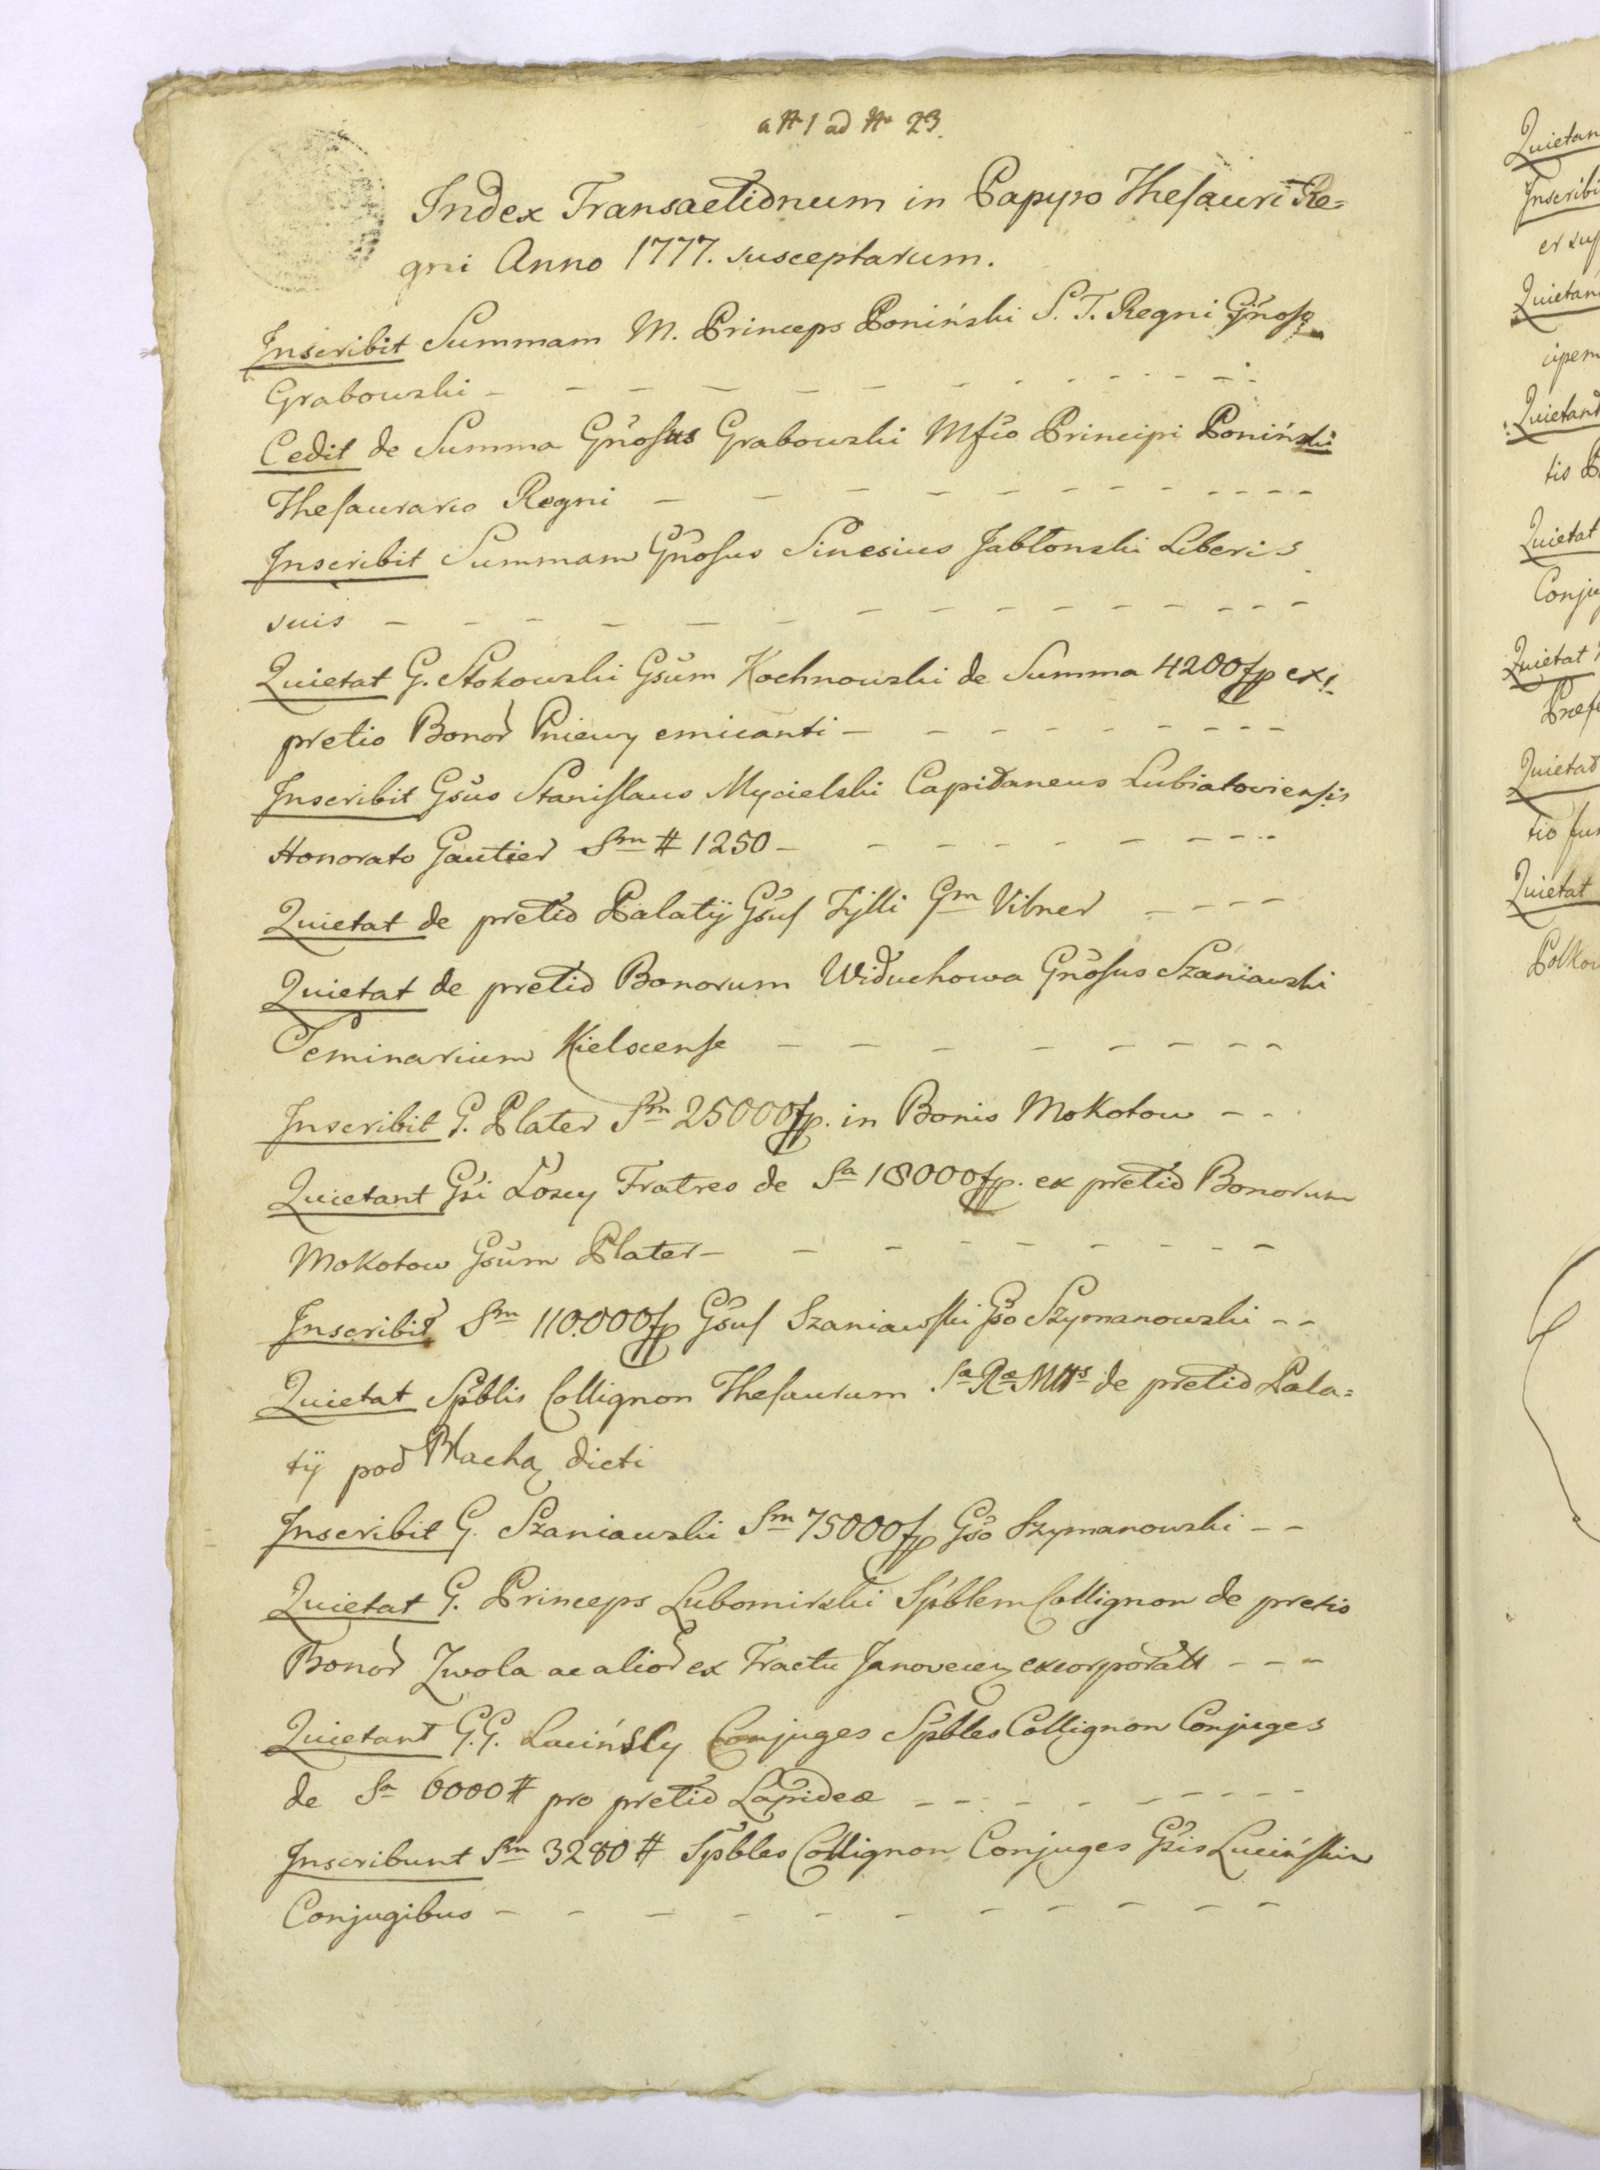 a N 1 ad N 23.
Index Transactionum in Papyro Thesauri Re=
gni Anno 1777. susceptarum.
Inscribit Summam M. Princeps Poniński S. T. Regni Gnoso
Grabowski - - - - - - - - - - - -
Cedit de Summa Gnosus Grabowski Mfco Principi Poniński
Thesaurario Regni - - - - - - - - - - - -
Inscribit Summam Gnosus Sinesius Jabłonski Liberis
suis - - - - - - - - - - - - -
Quietat G. Stokowski Gsum Kochnowski de Summa 4200 fp ex
pretio Bonor Pniewy emicanti - - - - - - - - -
Inscribit Gsus Stanislaus Mycielski Capitaneus Lubiatoviensis
Honorato Gautier Sm # 1250 - - - - - - - - -
Quietat de pretio Palatij Gsus Tylli Gm Vibner - - - -
Quietat de pretio Bonorum Widuchowa Gnosus Szaniawski
Seminarium Kielcense - - - - - - - - -
Inscribit G. Plater Sm 25000 fp. in Bonis Mokotow - -
Quietant Gsi Łoscy Fratres de Sa 18000 fp. ex pretio Bonorum
Mokotow Gsum Plater - - - - - - - - -
Inscribit Sm 110.000 fp Gsus Szaniawski Gso Szymanowski - -
Quietat Spblis Collignon Thesaurum Sa Ra Mttis de pretio Pala=
tij pod Blachą dicti
Inscribit G. Szaniawski Sm 75000 fp Gso Szymanowski - -
Quietat G. Princeps Lubomirski Spblem Collignon de pretio
Bonor Zwola ac alior ex Tractu Janovecen excorporatt - - -
Quietant G.G. Lucińscy Conjuges Spbles Collignon Conjuges
de Sa 6000 # pro pretio Lapideæ - - - - - - - - -
Inscribunt Sm 3280 # Spbles Collignon Conjuges Gsis Lucińskim
Conjugibus - - - - - - - - - - - -
Quietan
Inscribi
Quietan
cipem
Quietant
tis
Quietat
Conju
Quietat
Quietat
Quietat